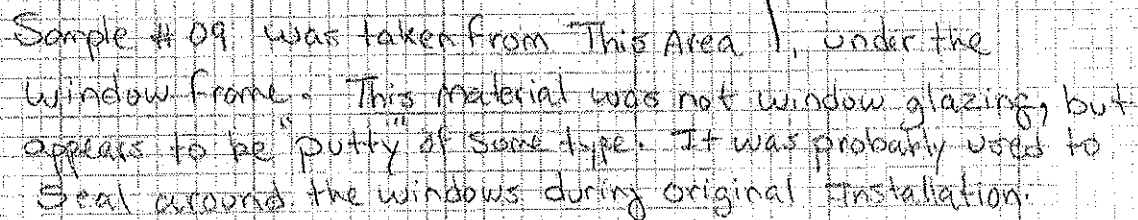 Sample # 09 was taken from This Area , under the
window frame. This material was not window glazing, but
appears to be "putty" of some type. It was probably used to
Seal around the windows during original Installation.